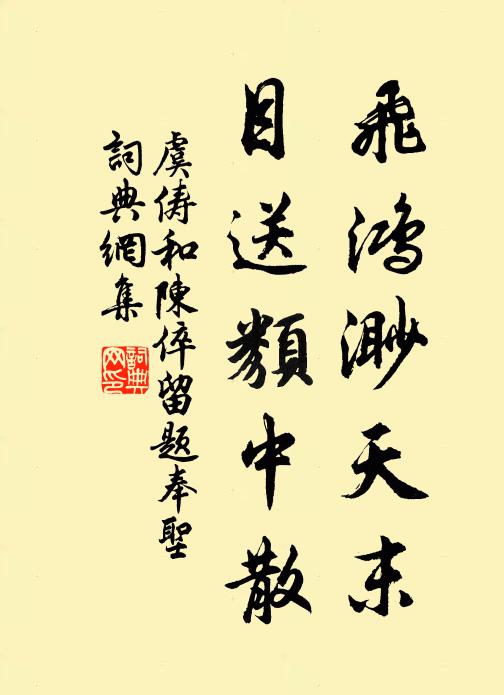 飛鴻渺天末
目送類中散
虞儔和陳倅留題奉聖
詞典網集
詞典網印